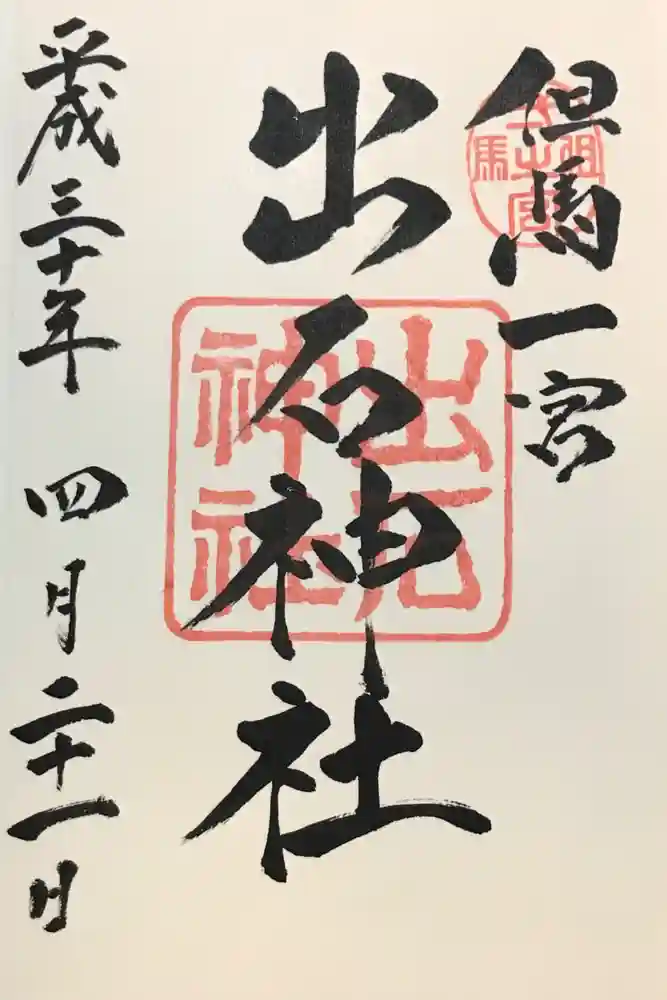 但馬一宮
出石神社
平成三十年 四月二十一日
出石
神社